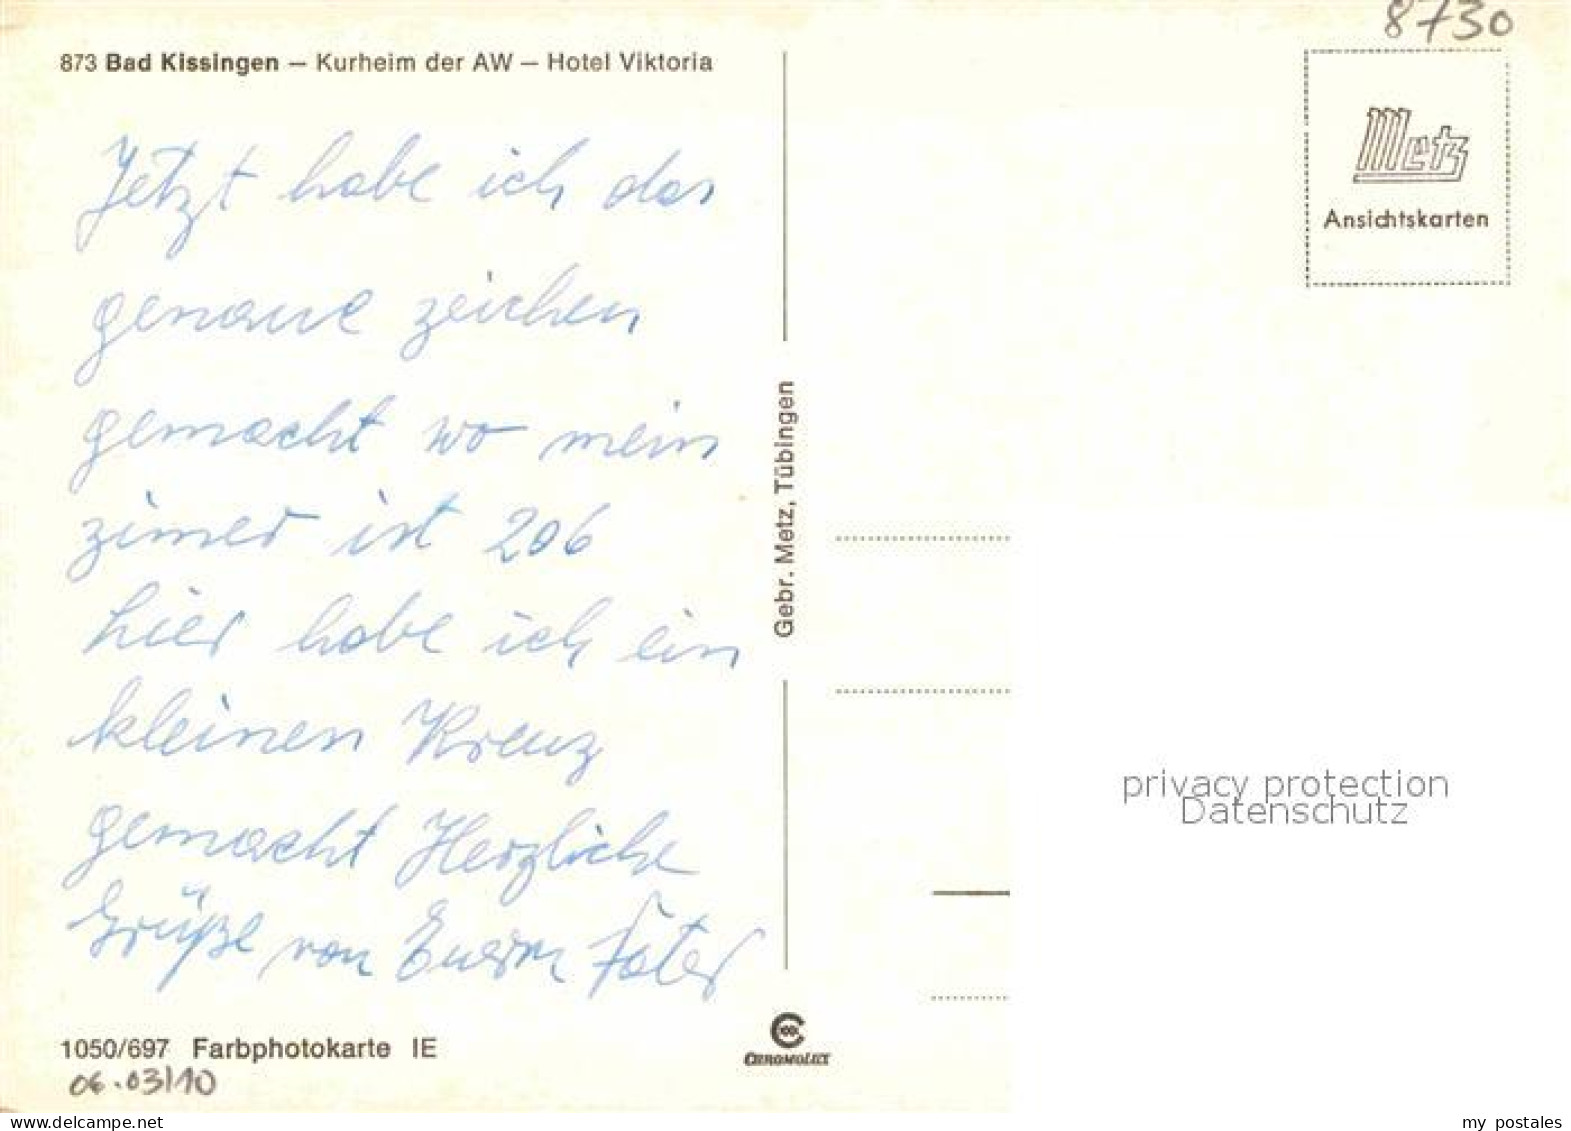 8730
873 Bad Kissingen – Kurheim der AW – Hotel Viktoria
Metz
Ansichtskarten
Jetzt habe ich das
genaue zeichen
gemacht wo mein
zimer ist 206
hier habe ich ein
kleinen Kreuz
gemacht Herzliche
Grüße von Euerm Fater
Gebr. Metz, Tübingen
privacy protection
Datenschutz
1050/697 Farbphotokarte IE
CHROMOLUX
06.03/10
delcampe.net
my_postales